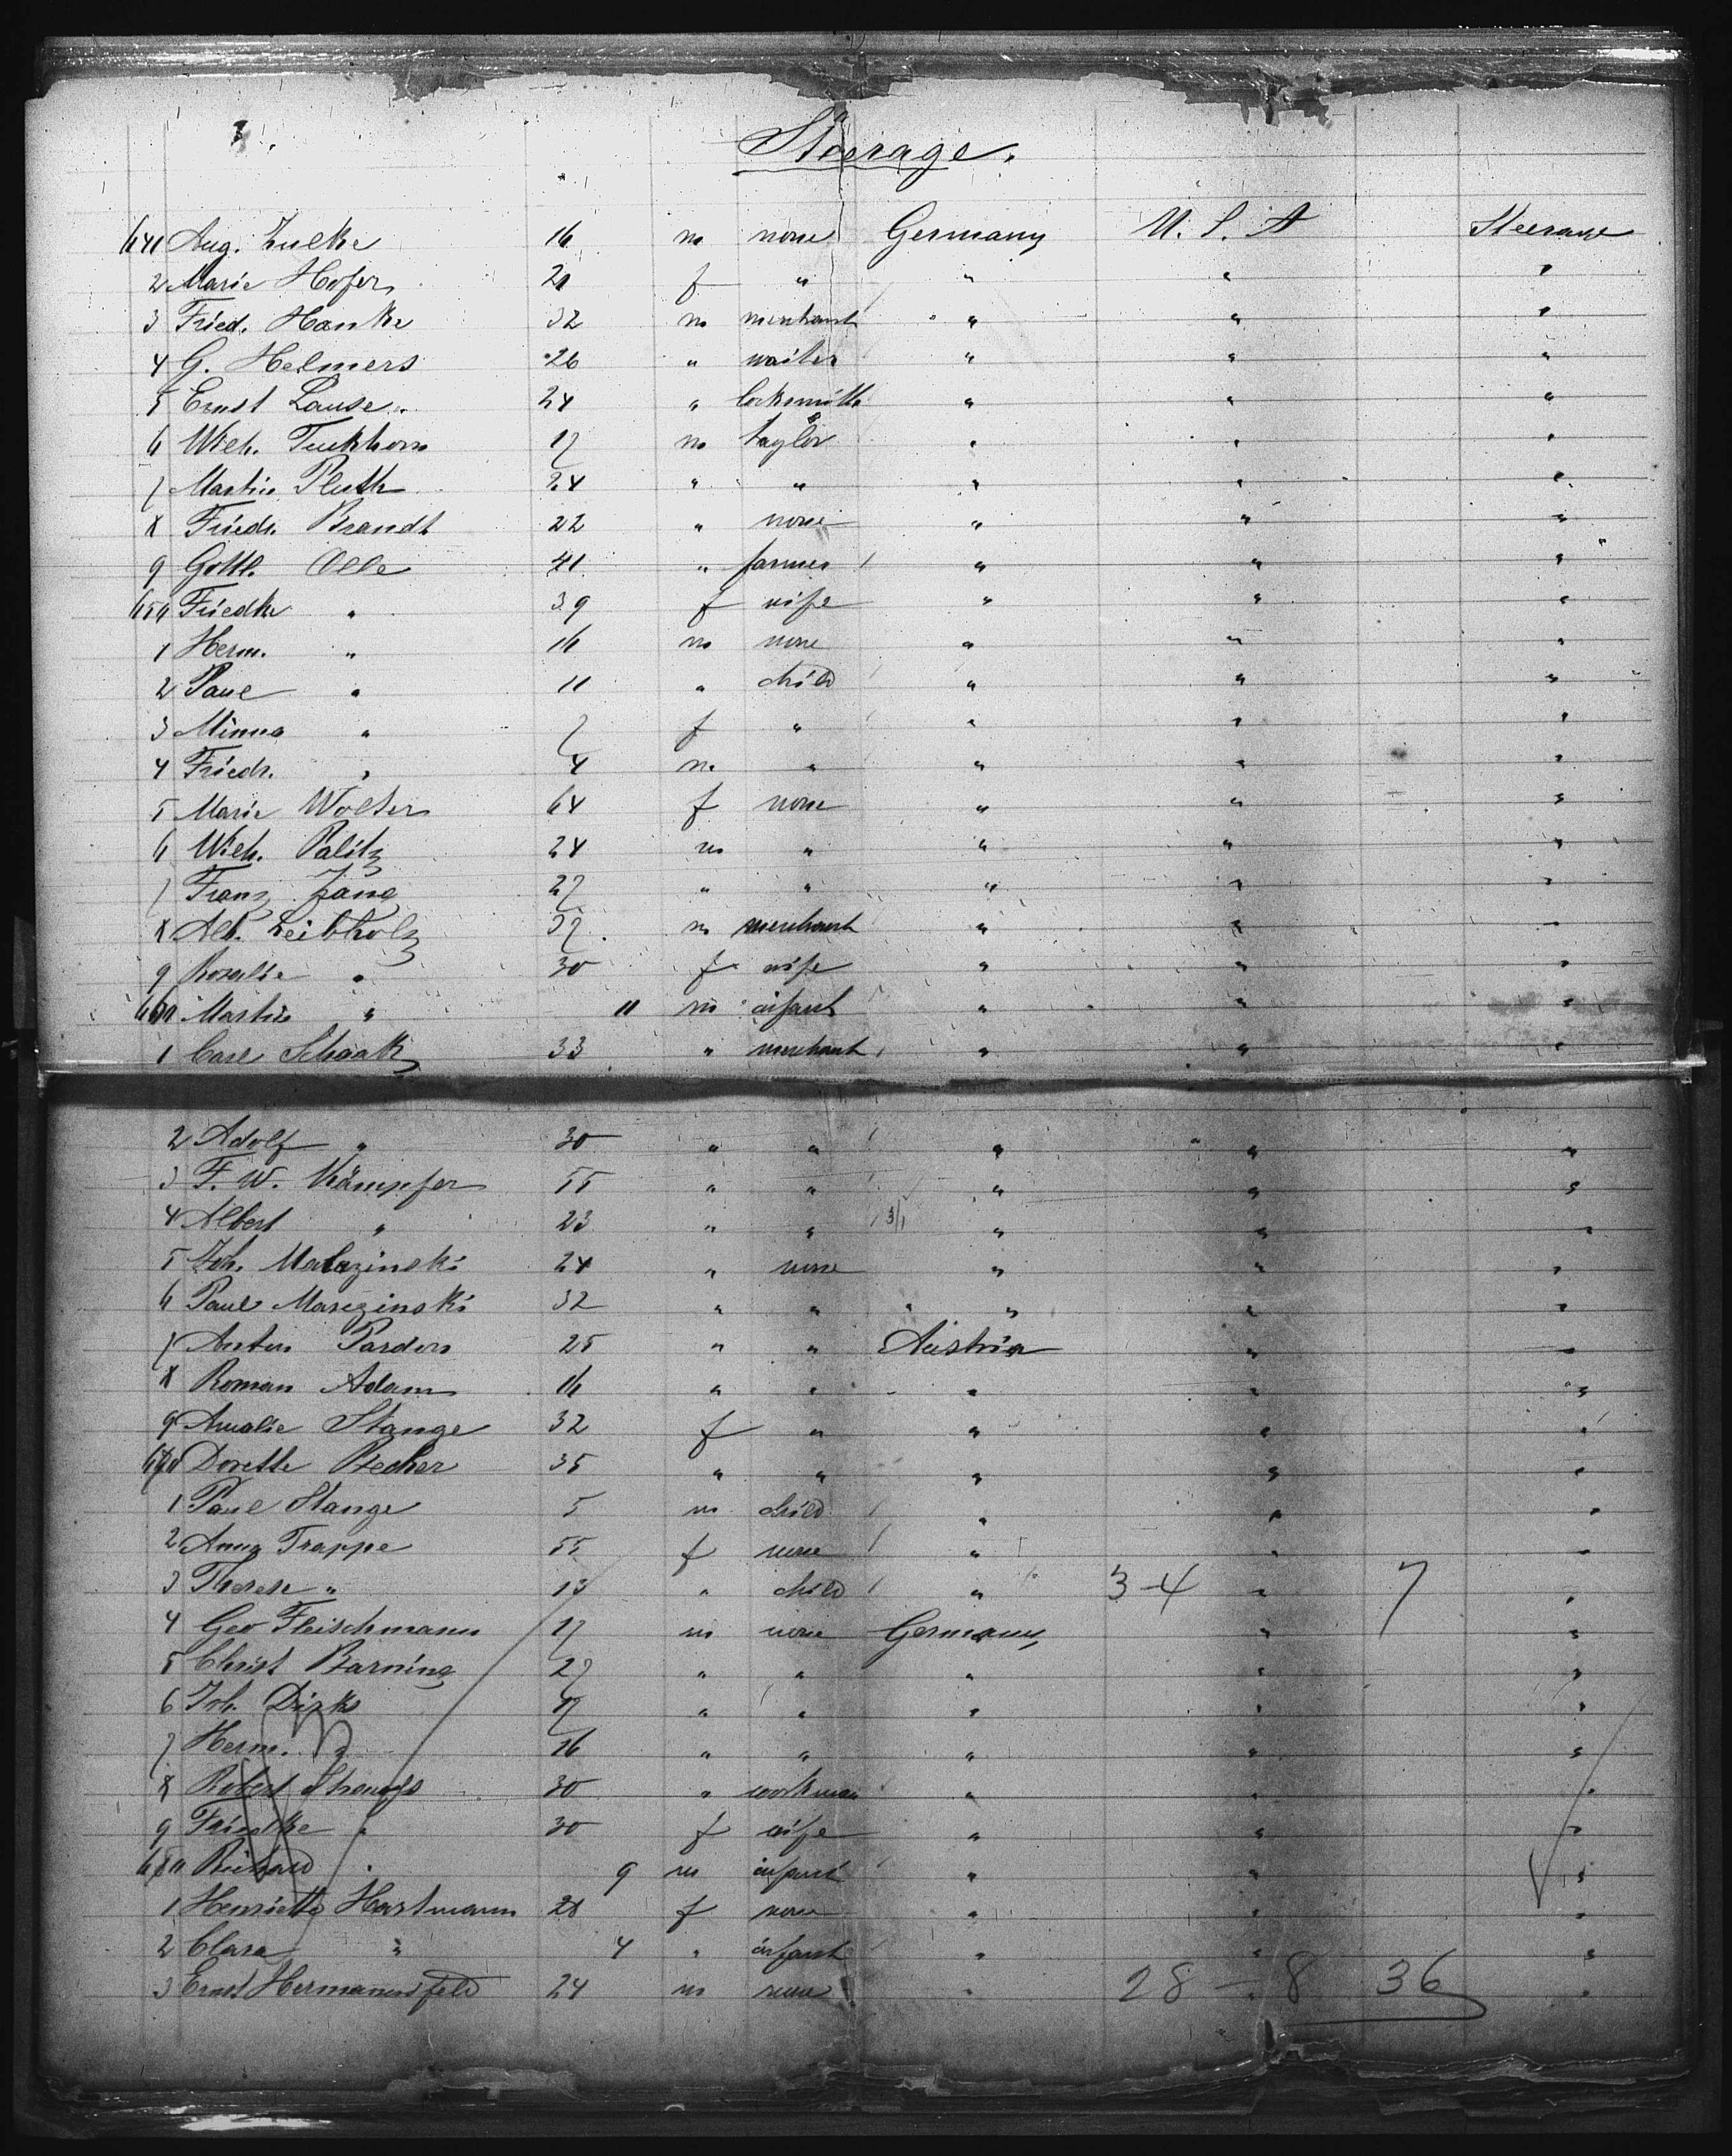 Steerage.
641 Aug. Zulke 16 m none Germany U. S. A Steerage
2 Marie Hofer 21 f " " " "
3 Fried. Hanke 32 m merchant " " "
4 G. Helmers 26 " waiter " " "
5 Ernst Lause 24 " locksmith " " "
6 Wilh. Tuckhorn 17 m taylor " " "
7 Martin Pluth 24 " " " " "
8 Friedr. Brandt 22 " none " " "
9 Gottl. Olle 41 " farmer " " "
650 Friedke " 39 f wife " " "
1 Herm. " 16 m none " " "
2 Paul " 11 " child " " "
3 Minna " 7 f " " " "
4 Friedr. " 4 m " " " "
5 Marie Wolter 64 f none " " "
6 Wilh. Palitz 24 m " " " "
7 Franz Zang 27 " " " " "
8 Alb. Leibholz 37 m merchant " " "
9 Rosalie " 30 f wife " " "
660 Martin " 11 m infant " " "
1 Carl Schaak 33 " merchant " " "
2 Adolf " 30 " " " " "
3 F. W. Kämpfer 55 " " " " "
4 Albert " 23 " " 3/1 " " "
5 Joh. Malazinski 24 " none " " "
6 Paul Marczinski 32 " " " " "
7 Anton Parders 25 " " Austria " "
8 Roman Adam 16 " " " " "
9 Amalie Stange 32 f " " " "
670 Dorette Becher 35 " " " " "
1 Paul Stange 5 m child " " "
2 Anna Trappe 55 f none " " "
3 Therese " 13 " child " 3-4 " 7 "
4 Geo Fleischmann 17 m none Germany " "
5 Christ Barning 27 " " " " "
6 Joh. Dirks 17 " " " " "
7 Herm. " 16 " " " " "
8 Robert 30 " workman " " "
9 Friedke " 30 f wife " " "
680 Richard " 9 m infant " " "
1 Henriette Hartmann 28 f none " " "
2 Clara " 4 " infant " " "
3 Ernst Hermannsfeld 24 m none " 28 - 8 36 "